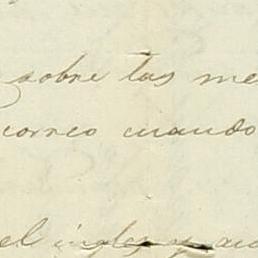 sobre las me
correo cuando
el ingles y